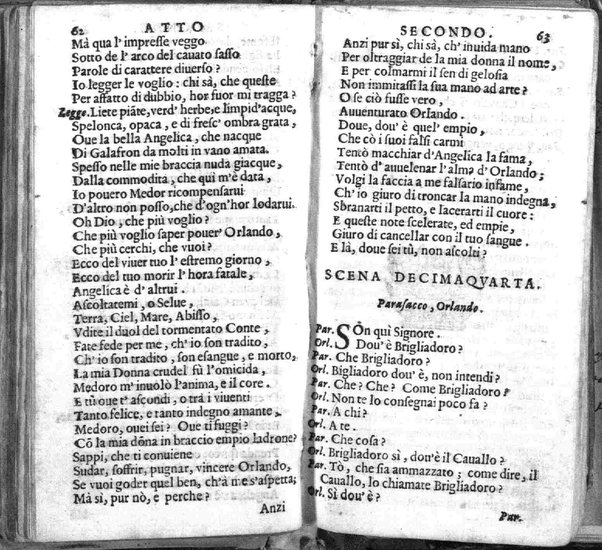 62 ATTO
Mà qua l' impresse veggo
Sotto de l' arco del cauato sasso
Parole di carattere diuerso?
Io legger le voglio: chi sà, che queste
Per affatto di dubbio, hor fuor mi tragga?
Legge. Liete piāte, verd' herbe, e limpid'acque,
Spelonca, opaca, e di fresc' ombra grata,
Oue la bella Angelica, che nacque
Di Galafron da molti in vano amata.
Spesso nelle mie braccia nuda giacque,
Dalla commodita, che quì m'è data,
Io pouero Medor ricompensarui
D'altro non posso, che d'ogn'hor lodarui.
Oh Dio, che più voglio?
Che più voglio saper pouer' Orlando,
Che più cerchi, che vuoi?
Ecco del viuer tuo l' estremo giorno,
Ecco del tuo morir l' hora fatale,
Angelica è d' altrui.
Ascoltatemi, o Selue,
Terra, Ciel, Mare, Abisso,
Vdite il duol del tormentato Conte,
Fate fede per me, ch' io son tradito,
Ch' io son tradito, son esangue, e morto,
La mia Donna crudel fù l'omicida,
Medoro m' inuolò l'anima, e il core.
E tù oue t' ascondi, o trà i viuenti
Tanto felice, e tanto indegno amante,
Medoro, ouei sei? Oue ti fuggi?
Cō la mia dōna in braccio empio ladrone?
Sappi, che ti conuiene
Sudar, soffrir, pugnar, vincere Orlando,
Se vuoi goder quel ben, ch'à me s'aspetta;
Mà sì, pur nò, e perche?
Anzi
SECONDO. 63
Anzi pur sì, chi sà, ch' inuida mano
Per oltraggiar de la mia donna il nome,
E per colmarmi il sen di gelosia
Non immitassi la sua mano ad arte?
O se ciò fusse vero,
Auuenturato Orlando.
Doue, dou' è quel' empio,
Che cò i suoi falsi carmi
Tentò macchiar d'Angelica la fama,
Tentò d' auuelenar l'alma d' Orlando;
Volgi la faccia a me falsario infame,
Ch' io giuro di troncar la mano indegna,
Sbranarti il petto, e lacerarti il cuore:
E queste note scelerate, ed empie,
Giuro di cancellar con il tuo sangue.
E là, doue sei tù, non ascolti?
SCENA DECIMAQVARTA.
Parasacco, Orlando.
Par. SOn quì Signore.
Orl. Dou' è Brigliadoro?
Par. Che Brigliadoro?
Orl. Bigliadoro dou' è, non intendi?
Par. Che? Che? Come Brigliadoro?
Orl. Non te lo consegnai poco fa?
Par. A chi?
Orl. A te.
Par. Che cosa?
Orl. Brigliadoro sì, dou'è il Cauallo?
Par. Tò, che sia ammazzato; come dire, il
Cauallo, lo chiamate Brigliadoro?
Orl. Sì dou' è?
Par.